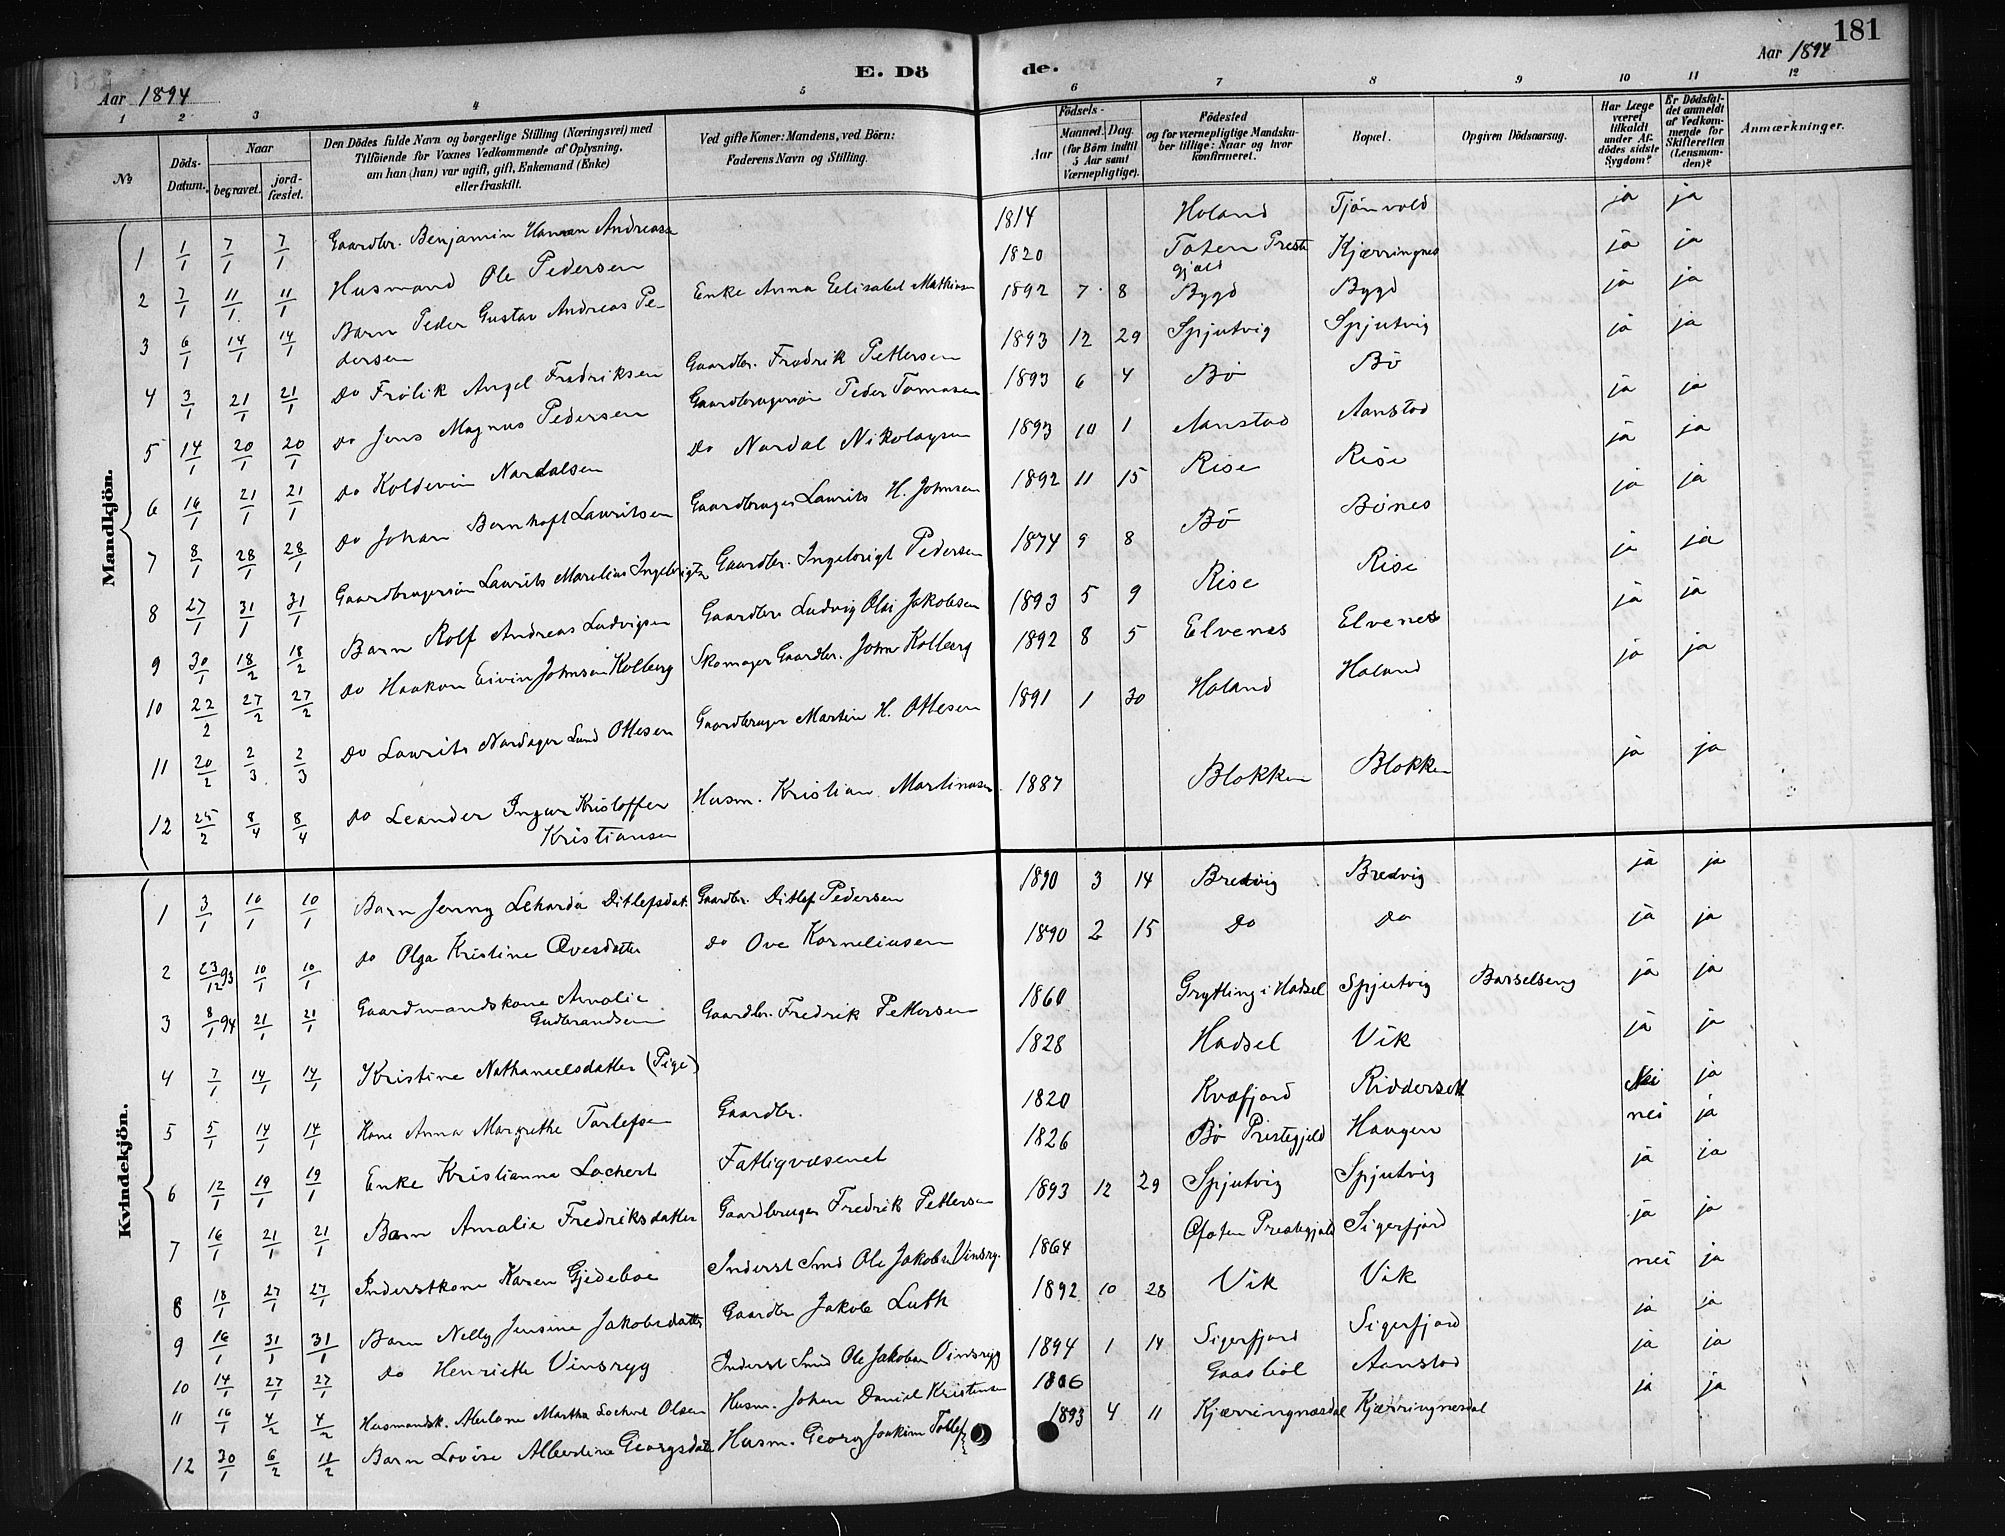 181
E. Döde.
Aar 1894
Aar 1894
1 2 3 4 5 6 7 8 9 10 11 12
No
Döds-Datum.
Naar
begravet.
jord-fæstet.
Den Dödes fulde Navn og borgerlige Stilling (Næringsvei) med
Tilföiende for Voxnes Vedkommende af Oplysning,
om han (hun) var ugift, gift, Enkemand (Enke)
eller fraskilt.
Ved gifte Koner: Mandens, ved Börn:
Faderens Navn og Stilling.
Födsels-
Aar
Maaned. Dag.
(for Börn indtil
5 Aar samt
Værnepligtige).
Födested
og for værnepligtige Mandsku-
ber tillige: Naar og hvor
konfirmeret.
Bopæl.
Opgiven Dödsaarsag.
Har Læge
været
tilkaldt
under Af-
dödes sidste
Sygdom?
Er Dödsfal-
det anmeldt
af Vedkom-
mende for
Skifteretten
(Lensman-
den)?
Anmærkninger.
Mandkjön.
1 1/1 7/1 7/1 Gaardbr. Benjamin Hansen Andreasen 1814 Holand Tjönvold ja ja
2 7/1 11/1 11/1 Husmand Ole Pedersen 1820 Toten Prestegjeld Kjærringnes ja ja
3 6/1 14/1 14/1 Barn Peder Gustav Andreas Pedersen Enke Anna Elisabet Mathiasen 1892 7 8 Bygd Bygd ja ja
4 3/1 21/1 21/1 Do Frölik Angel Fredriksen Gaardbr. Fredrik Pettersen 1893 12 29 Spjutvig Spjutvig ja ja
5 14/1 20/1 20/1 Do Jens Magnus Pedersen Gaardbrugersön Peder Tomasen 1893 6 4 Bö Bö
6 16/1 21/1 21/1 Do Koldevin Nardalsen Do Nardal Nikolaysen 1893 10 1 Aanstad Aanstad ja ja
7 8/1 28/1 28/1 Do Johan Bernhoft Lauritsen Gaardbruger Laurits H. Johnsen 1892 11 15 Rise Rise ja ja
8 27/1 31/1 31/1 Gaardbrugersön Laurits Marelius Ingebrigtsen Gaardbr. Ingebrigt Pedersen 1874 9 8 Bö Bönes ja ja
9 30/1 18/2 18/2 Barn Rolf Andreas Ludvigsen Gaardbr. Ludvig Olai Jakobsen 1893 5 9 Rise Rise ja ja
10 22/2 27/2 27/2 Do Haakon Eivin Johnsen Kolberg Skomager Gaardbr. John Kolberg 1892 8 5 Elvenes Elvenes ja ja
11 20/2 2/3 2/3 Do Laurits Nordager Lund Ottesen Gaardbruger Martin H. Ottesen 1891 1 30 Holand Holand ja ja
12 25/2 8/4 8/4 Do Leander Ingvar Kristoffer Kristiansen Husm. Kristian Martinusen 1887 Blokken Blokken ja ja
Kvindekjön.
1 3/1 10/1 10/1 Barn Jenny Lekarda Ditlefsdat. Gaardbr. Ditlef Pedersen 1890 3 14 Bredvig Bredvig ja ja
2 23/12 93 10/1 10/1 Do Olga Kristine Ovesdatter Do Ove Korneliusen 1890 2 15 Do Do ja ja
3 8/1 94 21/1 21/1 Gaardmandskone Amalie Gudbrandsen Gaardbr. Fredrik Pettersen 1860 Grytting i Hadsel Spjutvig Barselseng ja ja
4 7/1 14/1 14/1 Kristine Nathanaelsdatter (Pige) 1828 Hadsel Vik ja ja
5 5/1 14/1 14/1 Kone Anna Margrethe Torlefsen Gaardbr. 1820 Kvæfjord Nei ja
6 12/1 19/1 19/1 Enke Kristianna Lochert Fattigvæsenet 1826 Bö Prestegjeld Haugen nei ja
7 16/1 21/1 21/1 Barn Amalie Fredriksdatter Gaardbruger Fredrik Pettersen 1893 12 29 Spjutvig Spjutvig ja ja
8 18/1 27/1 27/1 Inderstkone Karen Gjedeboe Inderst Smed Ole Jakobsen Vinsryg. 1864 Ofoten Prestegjeld Sigerfjord ja ja
9 16/1 31/1 31/1 Barn Nelly Jensine Jakobsdatter Gaardbr Jakob Luth 1892 10 28 Vik Vik nei ja
10 14/1 27/1 27/1 Do Henriette Vinsryg Inderst Smed Ole Jakobsen Vinsryg 1894 1 14 Sigerfjord Sigerfjord ja ja
11 16/1 4/2 4/2 Husmandsk. Martha Lochert Olsen Husm. Johan Daniel Kristensen Gaasböl Aanstad ja ja
12 30/1 6/2 11/2 Barn Lovise Albertine Georgsdat Husm. Georg Joakim Tollefs 1893 4 11 Kjærringnesdal Kjærringnesdal ja ja